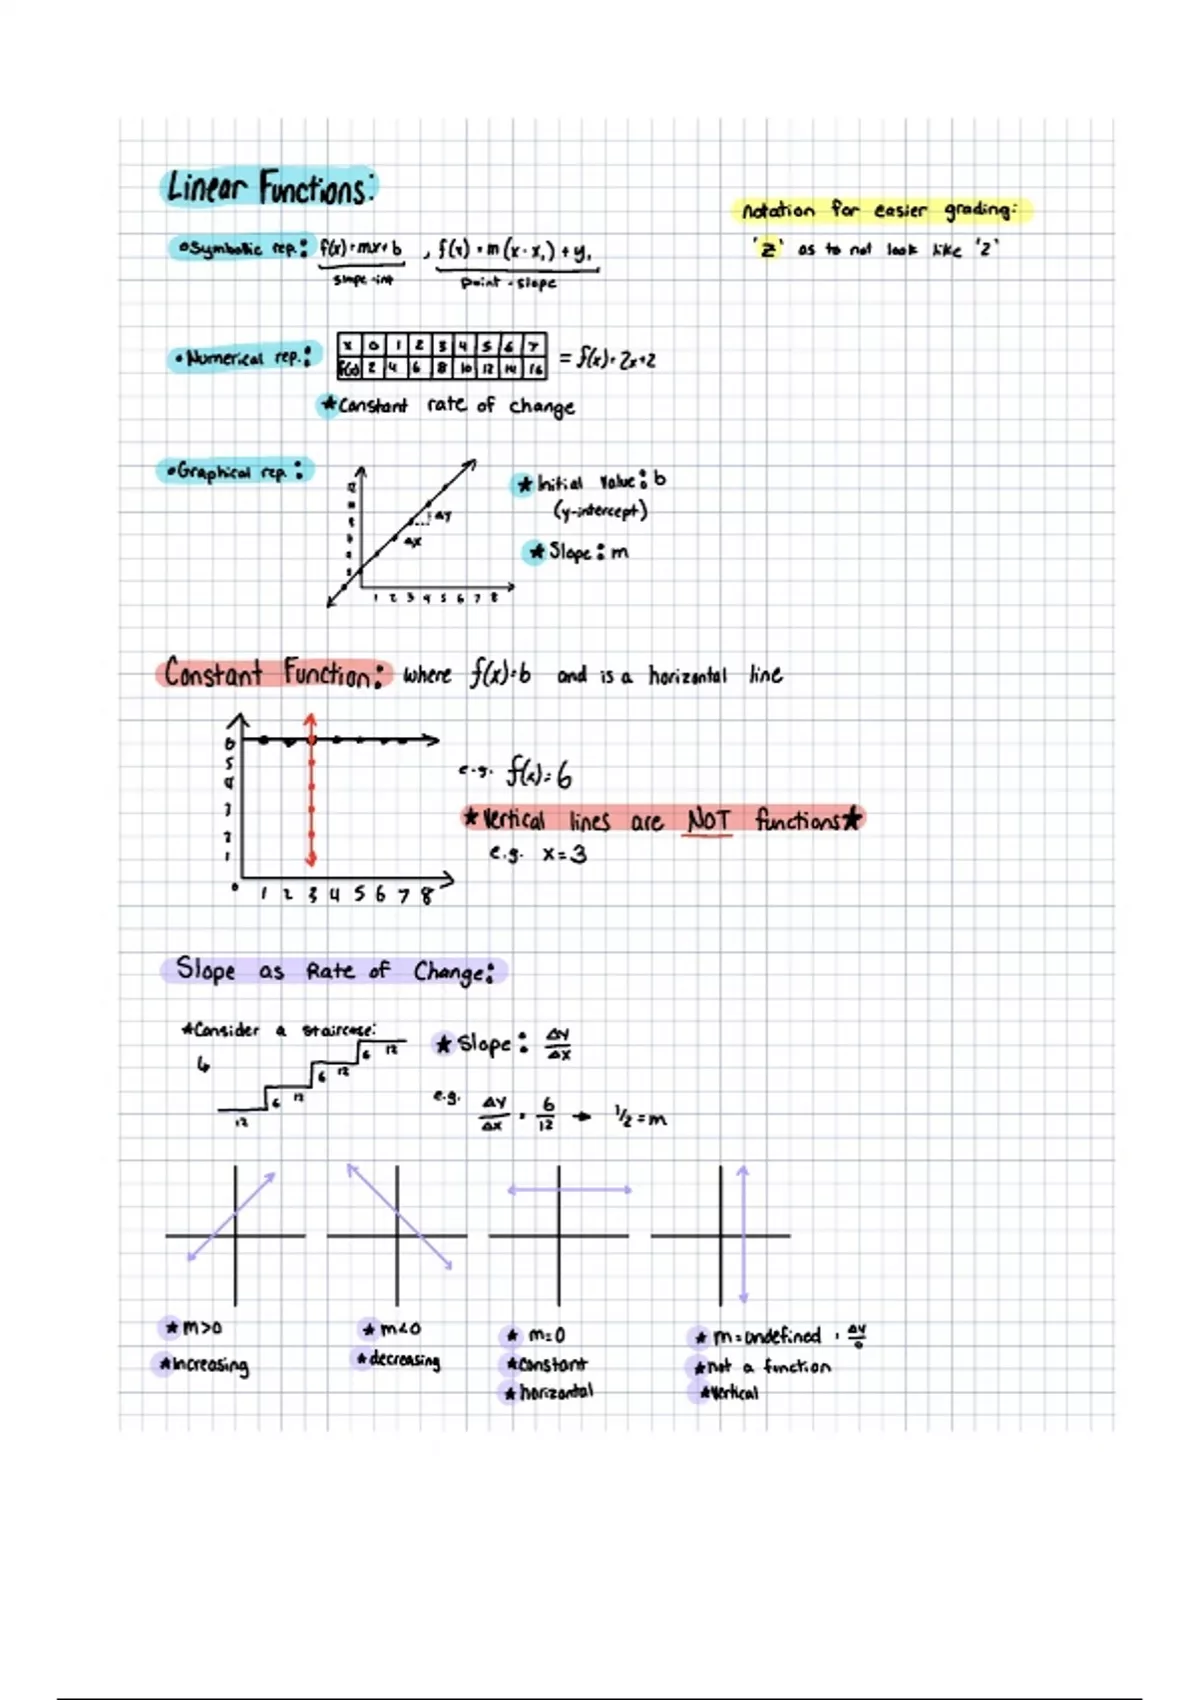 Linear Functions:
Notation for easier grading:
'z' as to not look like '2'
•Symbolic rep.: f(x)=mx+b , f(x)=m(x-x₁)+y₁
slope-int point-slope
•Numerical rep.:
x 0 1 2 3 4 5 6 7
f(x) 2 4 6 8 10 12 14 16
= f(x)=2x+2
★Constant rate of change
•Graphical rep.:
★Initial Value: b
(y-intercept)
★Slope: m
12
ΔY
ΔX
1 2 3 4 5 6 7 8
Constant Function: where f(x)=b and is a horizontal line
6
5
4
3
2
1
0 1 2 3 4 5 6 7 8
e.g. f(x)=6
★Vertical lines are NOT functions★
e.g. x=3
Slope as Rate of Change:
★Consider a staircase:
↳
12 6 12 6 12 6 12
★Slope: ΔY/ΔX
e.g. ΔY/ΔX = 6/12 → 1/2=m
★m>0
★increasing
★m<0
★decreasing
★m=0
★constant
★horizontal
★m=undefined, ΔY/0
★not a function
★vertical